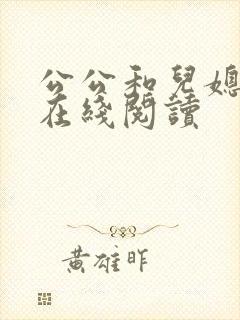 公公和兒媳
在綫閱讀
黃雄昨